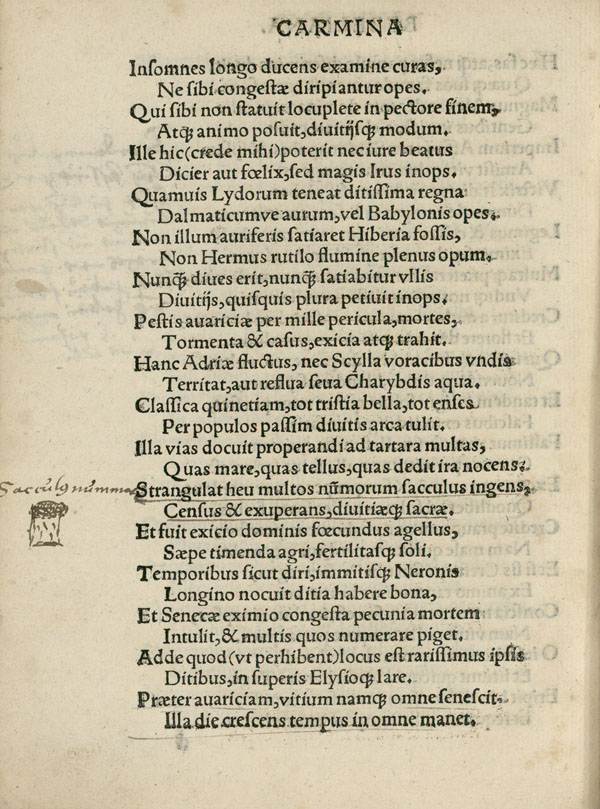 CARMINA
Insomnes longo ducens examine curas,
Ne sibi congestæ diripiantur opes.
Qui sibi non statuit locuplete in pectore finem,
Atqꝫ animo posuit, diuitijsqꝫ modum.
Ille hic (crede mihi) poterit nec iure beatus
Dicier aut fœlix, sed magis Irus inops.
Quamuis Lydorum teneat ditissima regna
Dalmaticumve aurum, vel Babylonis opes.
Non illum auriferis satiaret Hiberia fossis,
Non Hermus rutilo flumine plenus opum.
Nunqꝫ diues erit, nunqꝫ satiabitur vllis
Diuitijs, quisquis plura petiuit inops.
Pestis auariciæ per mille pericula, mortes,
Tormenta & casus, exicia atqꝫ trahit.
Hanc Adriæ fluctus, nec Scylla voracibus vndis
Territat, aut reflua seua Charybdis aqua.
Classica quinetiam, tot tristia bella, tot enses
Per populos passim diuitis arca tulit.
Illa vias docuit properandi ad tartara multas,
Quas mare, quas tellus, quas dedit ira nocens.
Sacculꝰ nummorū
Strangulat heu multos nūmorum sacculus ingens,
Census & exuperans, diuitiæqꝫ sacræ.
Et fuit exicio dominis fœcundus agellus,
Sæpe timenda agri, fertilitasqꝫ soli.
Temporibus sicut diri, immitisqꝫ Neronis
Longino nocuit ditia habere bona,
Et Senecæ eximio congesta pecunia mortem
Intulit, & multis quos numerare piget.
Adde quod (vt perhibent) locus est rarissimus ipsis
Ditibus, in superis Elysioqꝫ lare.
Præter auariciam, vitium namqꝫ omne senescit.
Illa die crescens tempus in omne manet.